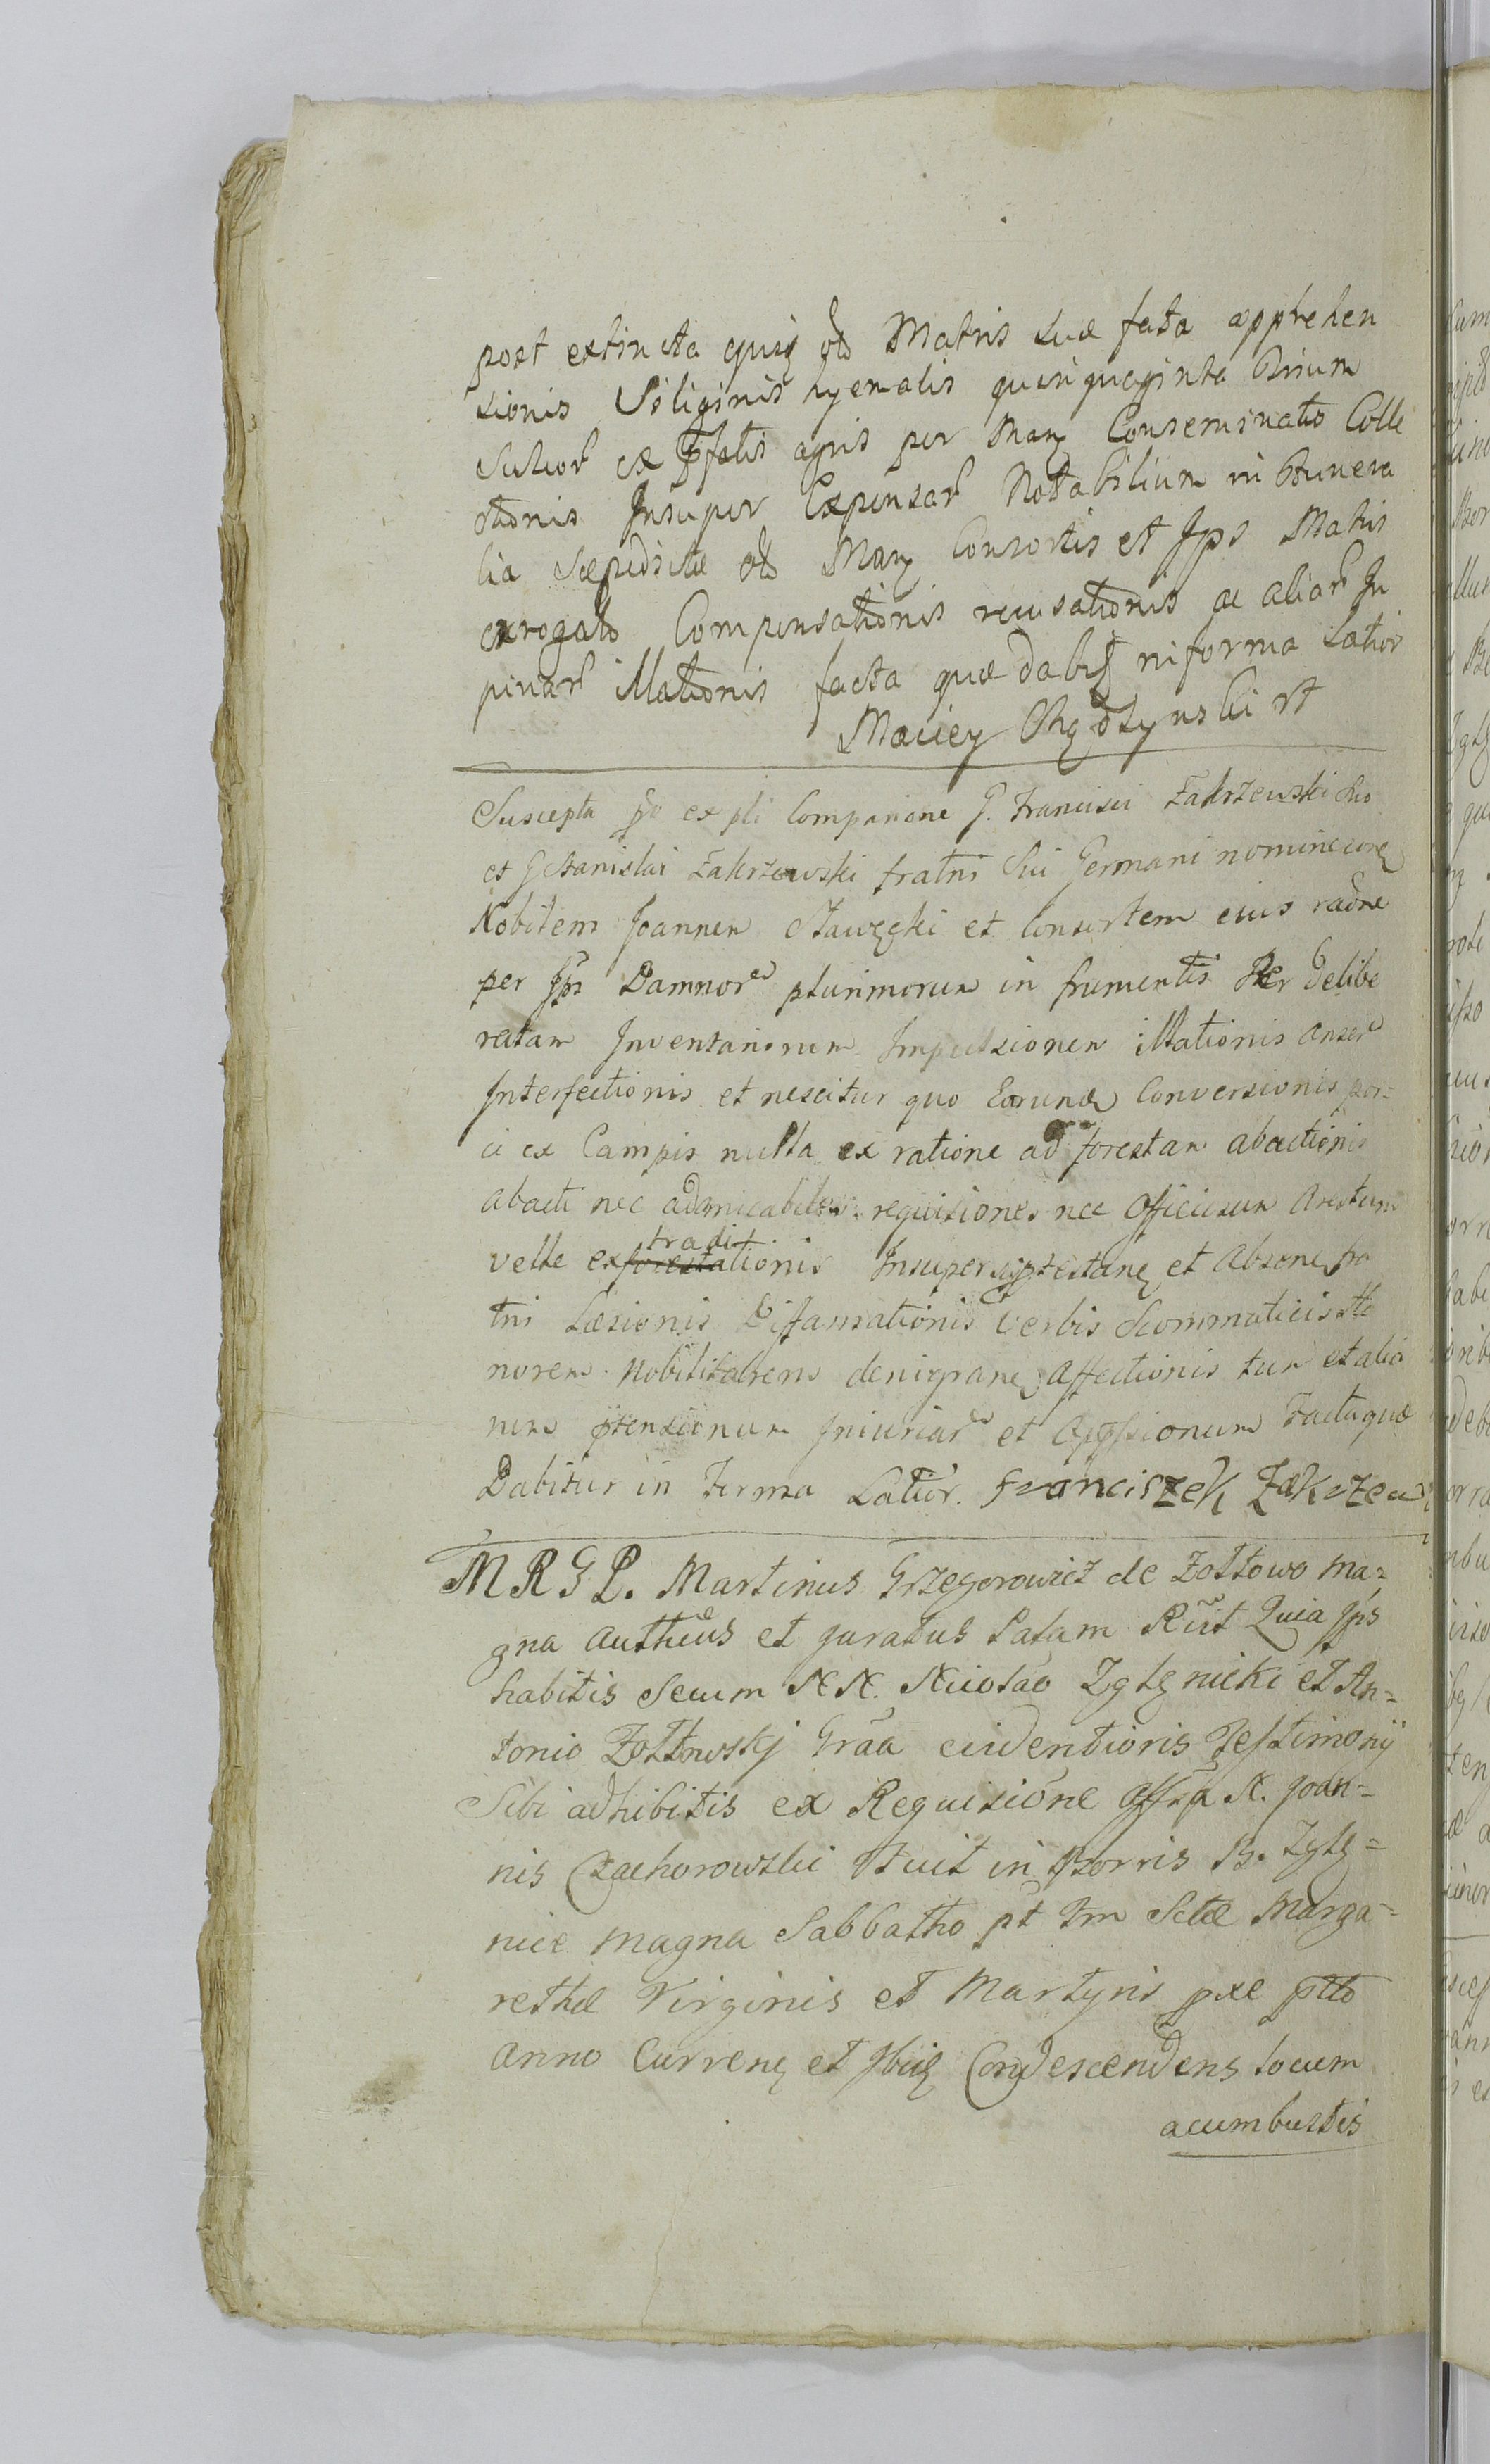 post extincta ejusq od Matris suæ fata apprehen
sionis Siliginis hyemalis quinquaginta trium
Sulcor ex pfatis agris per Marq Conseminatio Colle
ctionis Insuper Expensar Notabilium in Funera
lia Sæpedictæ Marq Consortis et Jps Matris
exrogato Compensationis recusationis ac aliar In
juriar illationis facta quæ dabiq in forma Latior
Maciey
Suscepta ex pli Comparione G. Francisci Zakrzewski suo
et G Stanislai Zakrzewski fratris Sui Germani nomine
Nobilem Joannem Stawęcki et Consortem eius raōne
per Jps Damnor plurimorum in frumentis Per delibe
ratam Inventariorum Impulsionem illationis Anser
Interfectionis et nescitur quo Eorund Conversionis por=
ci ex Campis nulla ex ratione ad forestam abactionis
abacti nec admicabiles requisiones nec Officiosum Arestum
velle extraditionis Insuper et Absone fra
tris Læsionis Diffamationis verbis Scommaticis Ho
norem Nobilitarem denigrane Affectionis tum et alia
rum ptensionum Iniuriar et Oppssionum Facta quæ
Dabitur in Forma Latior. Franciszek Zakrzew
M R G P. Martinus Grzegorowicz de Zołtowo ma=
gna Authcus et juratus Palam Rcūt Quia Jps
habitis Secum N N. Nicolao Zglenicki et An=
tonio Zołtowskj Grāa evidentioris Testimonÿ
Sibi adhibitis ex Requisiōne N. Joan=
nis Czachorowski Fuit in Bonis B. Zgle=
nice magna Sabbatho pt Fm Sctæ Marga=
rethæ Virginis et Martyris pxe ptto
Anno Currenq et Jbiq Condescendens locum
acumbustis